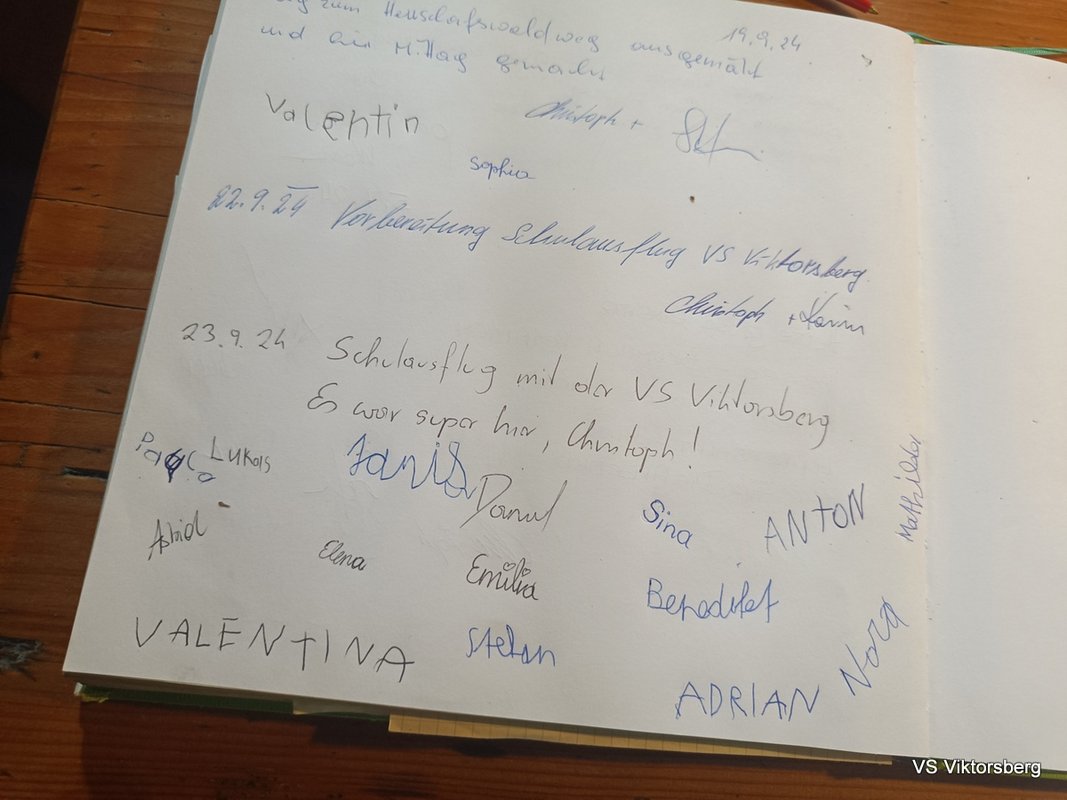 19.9.24
zum Heuschafswaldweg ausgemäht
und ein Mittag gemacht
Christoph +
Valentin
Sophia
22.9.24 Vorbereitung Schulausflug VS Viktorsberg.
Christoph + Karin
23.9.24 Schulausflug mit der VS Viktorsberg
Es war super hier, Christoph!
Lukas
Janis
Daniel
Sina
ANTON
Mathilda
Astrid
Elena
Emilia
Benedikt
Nora
VALENTINA
Stefan
ADRIAN
VS Viktorsberg